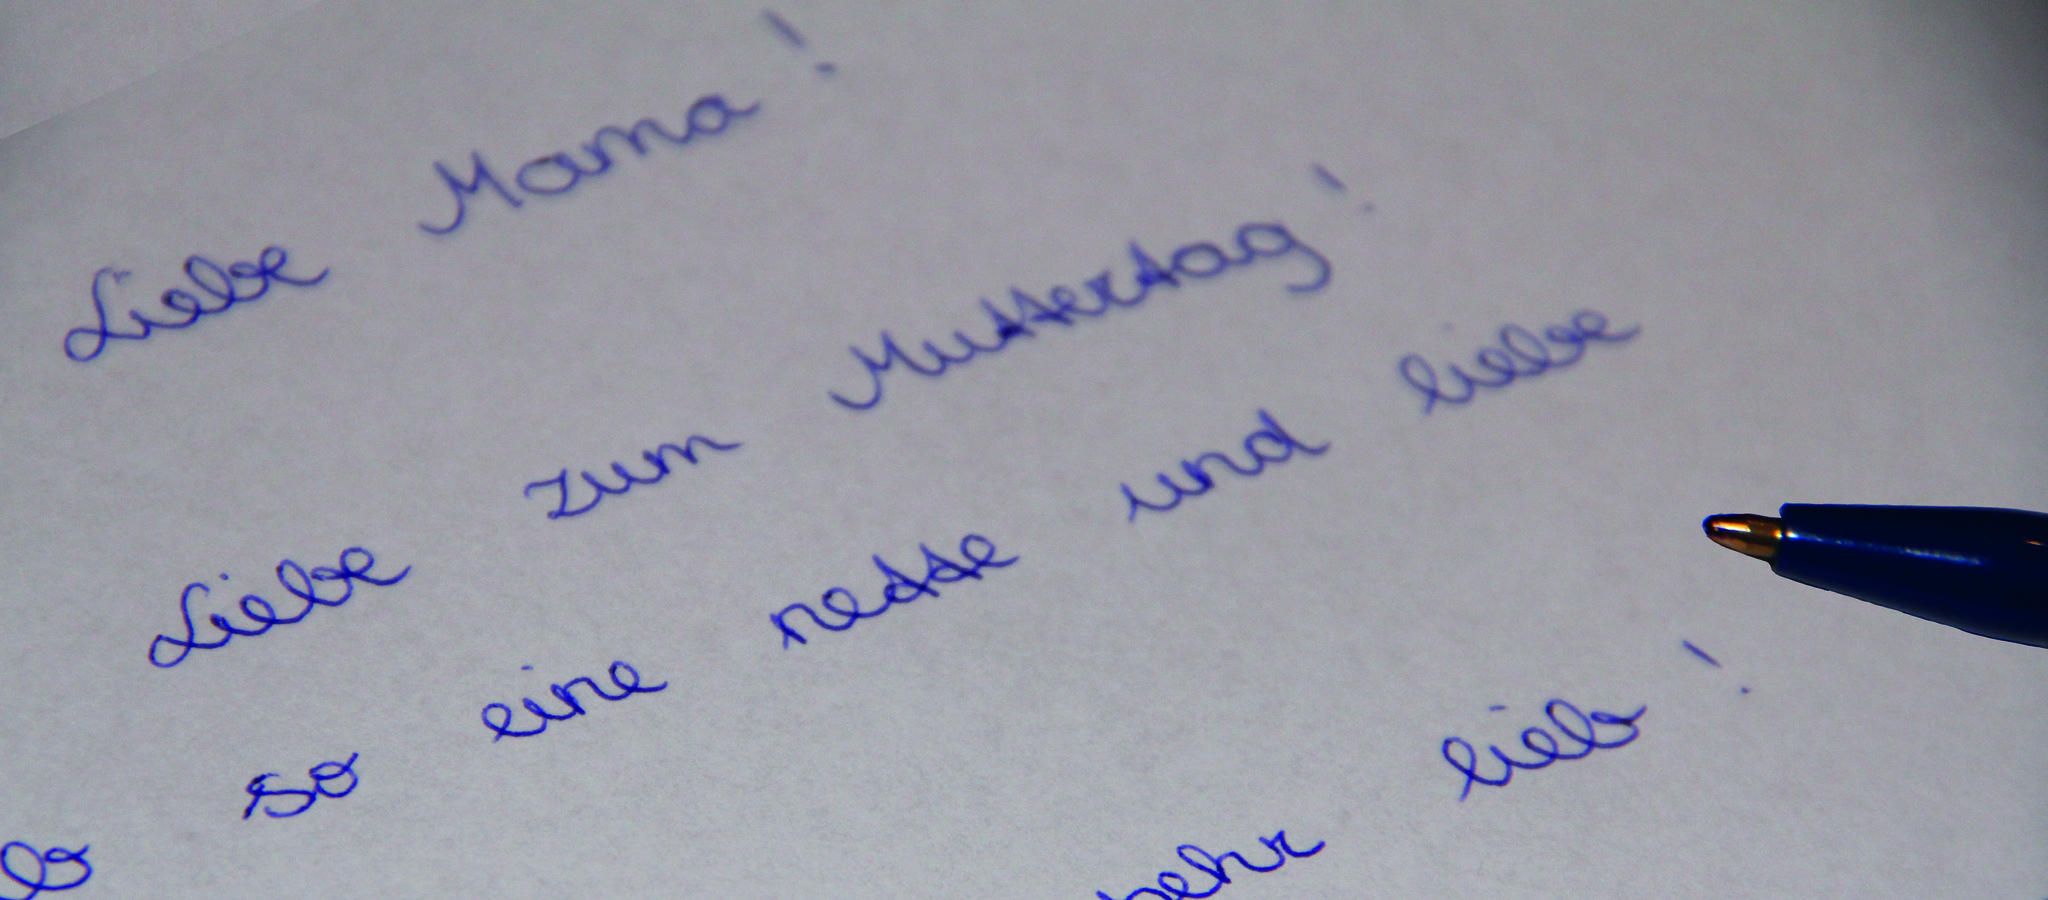 Liebe Mama!
Liebe zum Muttertag!
so eine nette und liebe
sehr lieb!